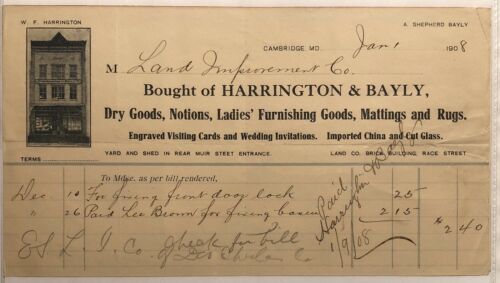 W. F. HARRINGTON
A. SHEPHERD BAYLY
CAMBRIDGE MD. Jan 1 1908
M Land Improvement Co.
Bought of HARRINGTON & BAYLY,
Dry Goods, Notions, Ladies' Furnishing Goods, Mattings and Rugs.
Engraved Visiting Cards and Wedding Invitations. Imported China and Cut Glass.
YARD AND SHED IN REAR MUIR STREET ENTRANCE. LAND CO. BRICK BUILDING, RACE STREET.
TERMS
To Mdse. as per bill rendered,
Dec. 10 For fixing front door lock 25
" 26 Paid Leo Brown for fixing 215
$ 240
Paid
Harrington & Bayly
1/9/08
L. I. Co. for bill
Co